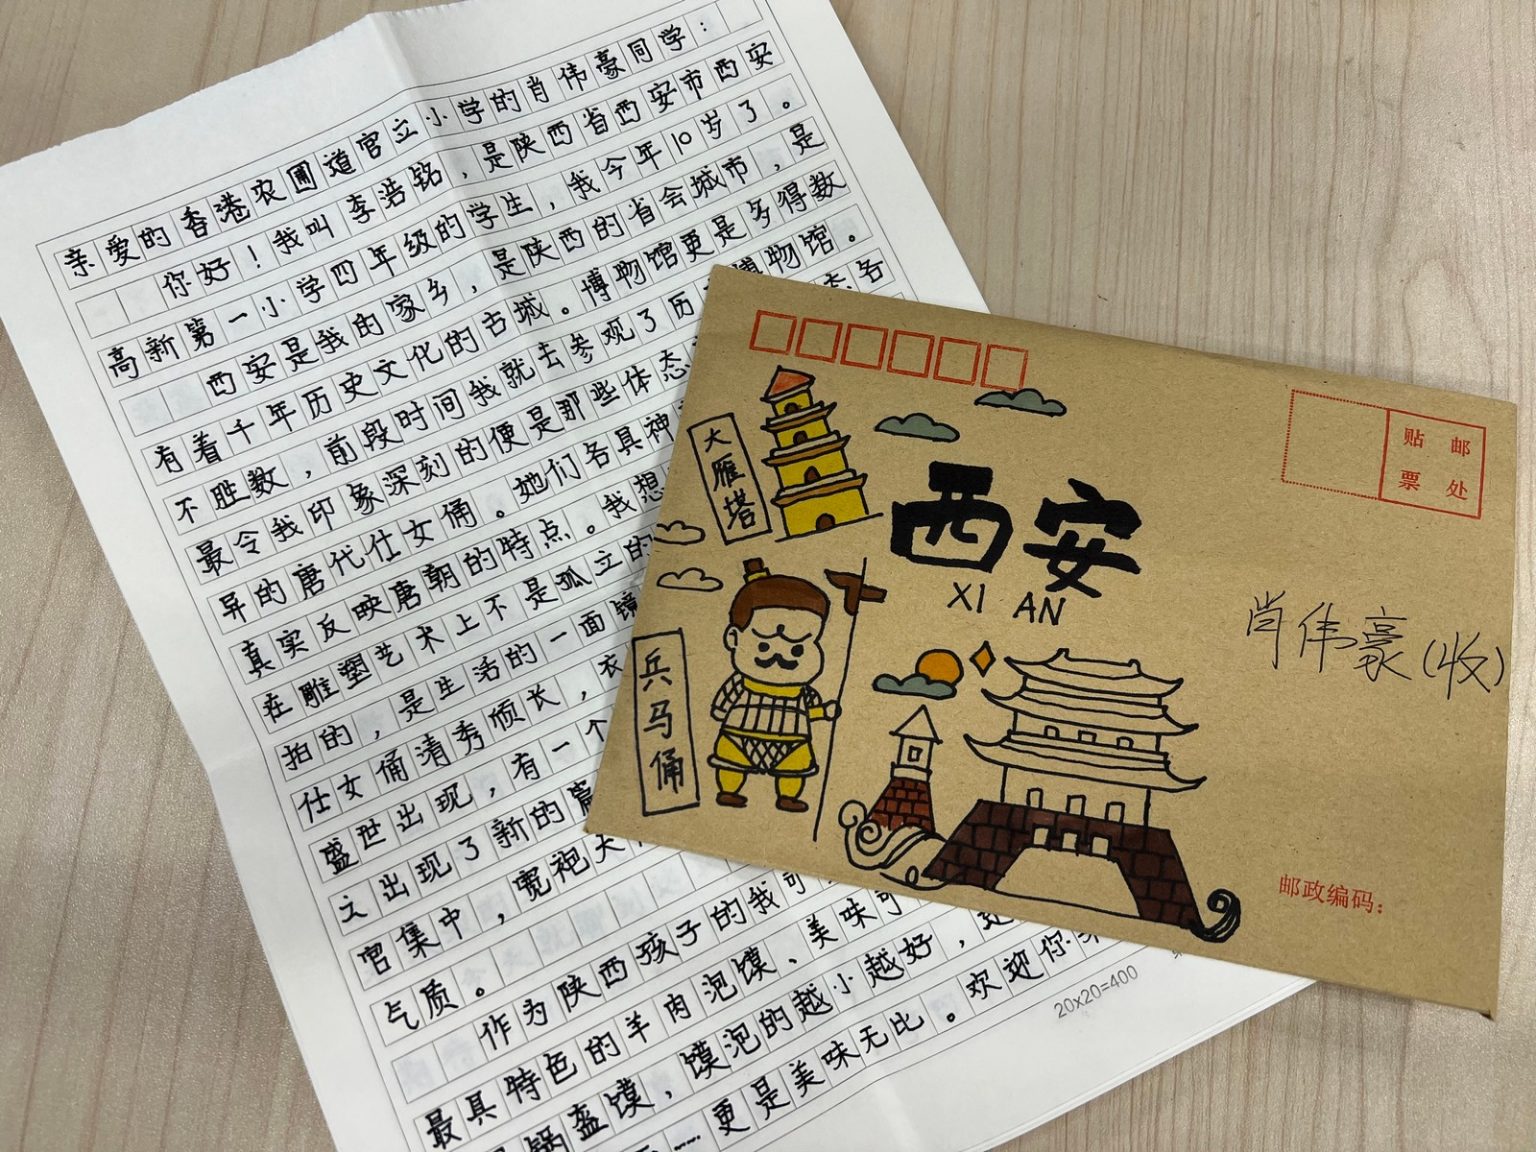 亲爱的香港农圃道官立小学的肖伟豪同学：
你好！我叫李浩铭，是陕西省西安市西安
高新第一小学四年级的学生，我今年10岁了。
西安是我的家乡，是陕西的省会城市，是
有着千年历史文化的古城。博物馆更是多得数
不胜数，前段时间我就去参观了历 博物馆。
最令我印象深刻的便是那些体态 各
异的唐代仕女俑。她们各具神
真实反映唐朝的特点。我想
在雕塑艺术上不是孤立的
拍的，是生活的一面镜
仕女俑清秀颀长，衣
盛世出现，有一个
立出现了新的
官集中，宽袍大
气质。
作为陕西孩子的我可
最具特色的羊肉泡馍、美味可
锅盔馍，馍泡的越小越好，
更是美味无比。欢迎你
20x20=400
大雁塔
西安
XI AN
兵马俑
贴邮
票处
肖伟豪(收)
邮政编码：